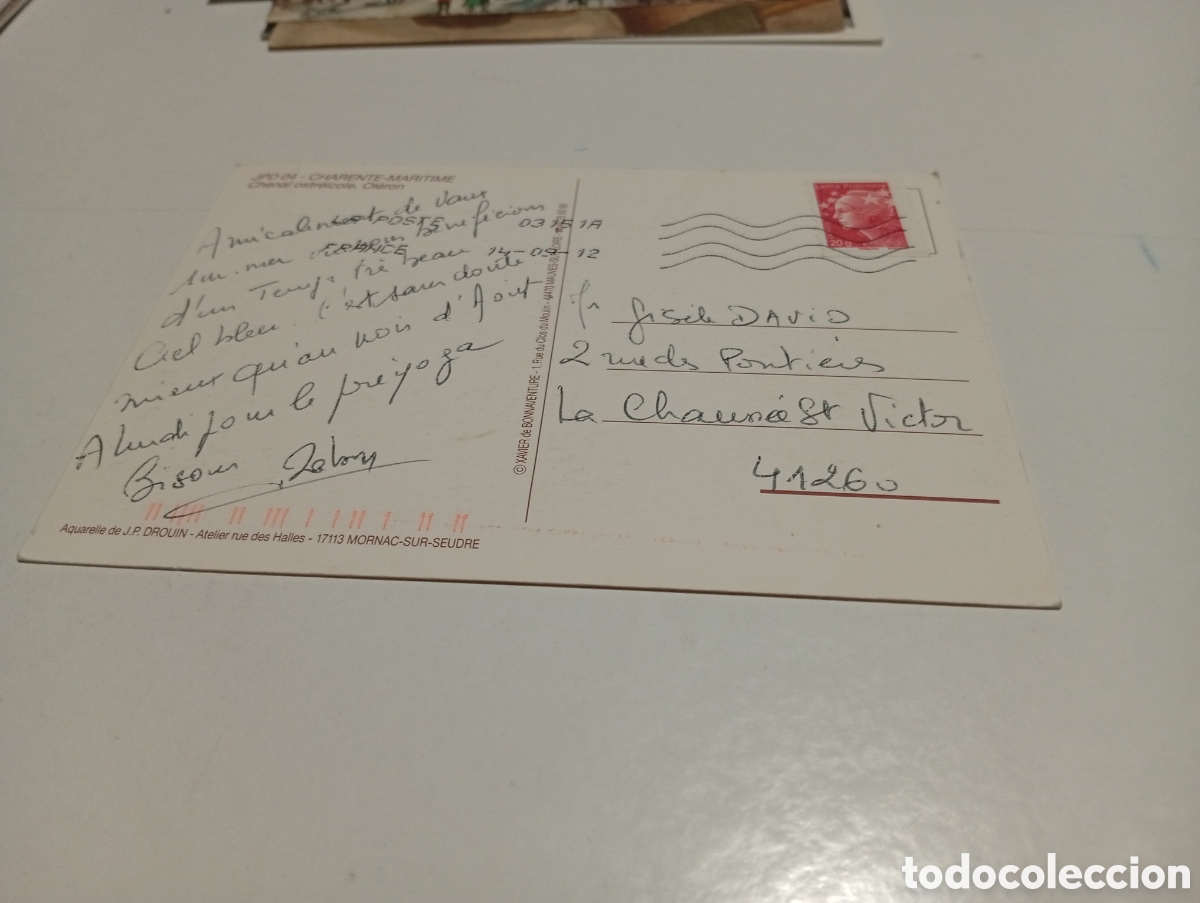 JPD 04 - CHARENTE-MARITIME
Chenal ostréicole, Oléron
Amicalement de Vaux
sur mer bénéficions
d'un Temps trè beau
Ciel bleu. C'est sans doute
mieux qu'au mois d'Août
A lundi pour le
Bisous
Aquarelle de J.P. DROUIN - Atelier rue des Halles - 17113 MORNAC-SUR-SEUDRE
© XAVIER de BONNAVENTURE - 1, Rue du Clos du Moulin - 44470 MAUVES-SUR-LOIRE
LA POSTE 03151A
FRANCE 14-09-12
Lettre Prioritaire
20 g
Gisèle DAVID
2 rue des Pontières
La Chaussée St Victor
41260
todocoleccion